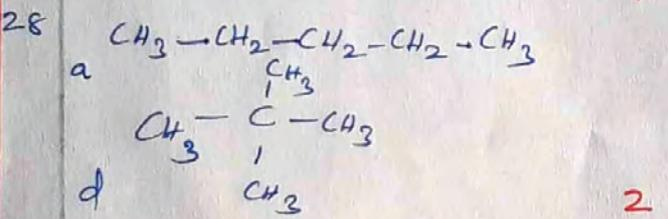 28 CH3—CH2—CH2-CH2-CH3
a CH3
|
CH3 — C — CH3
|
d CH3 2